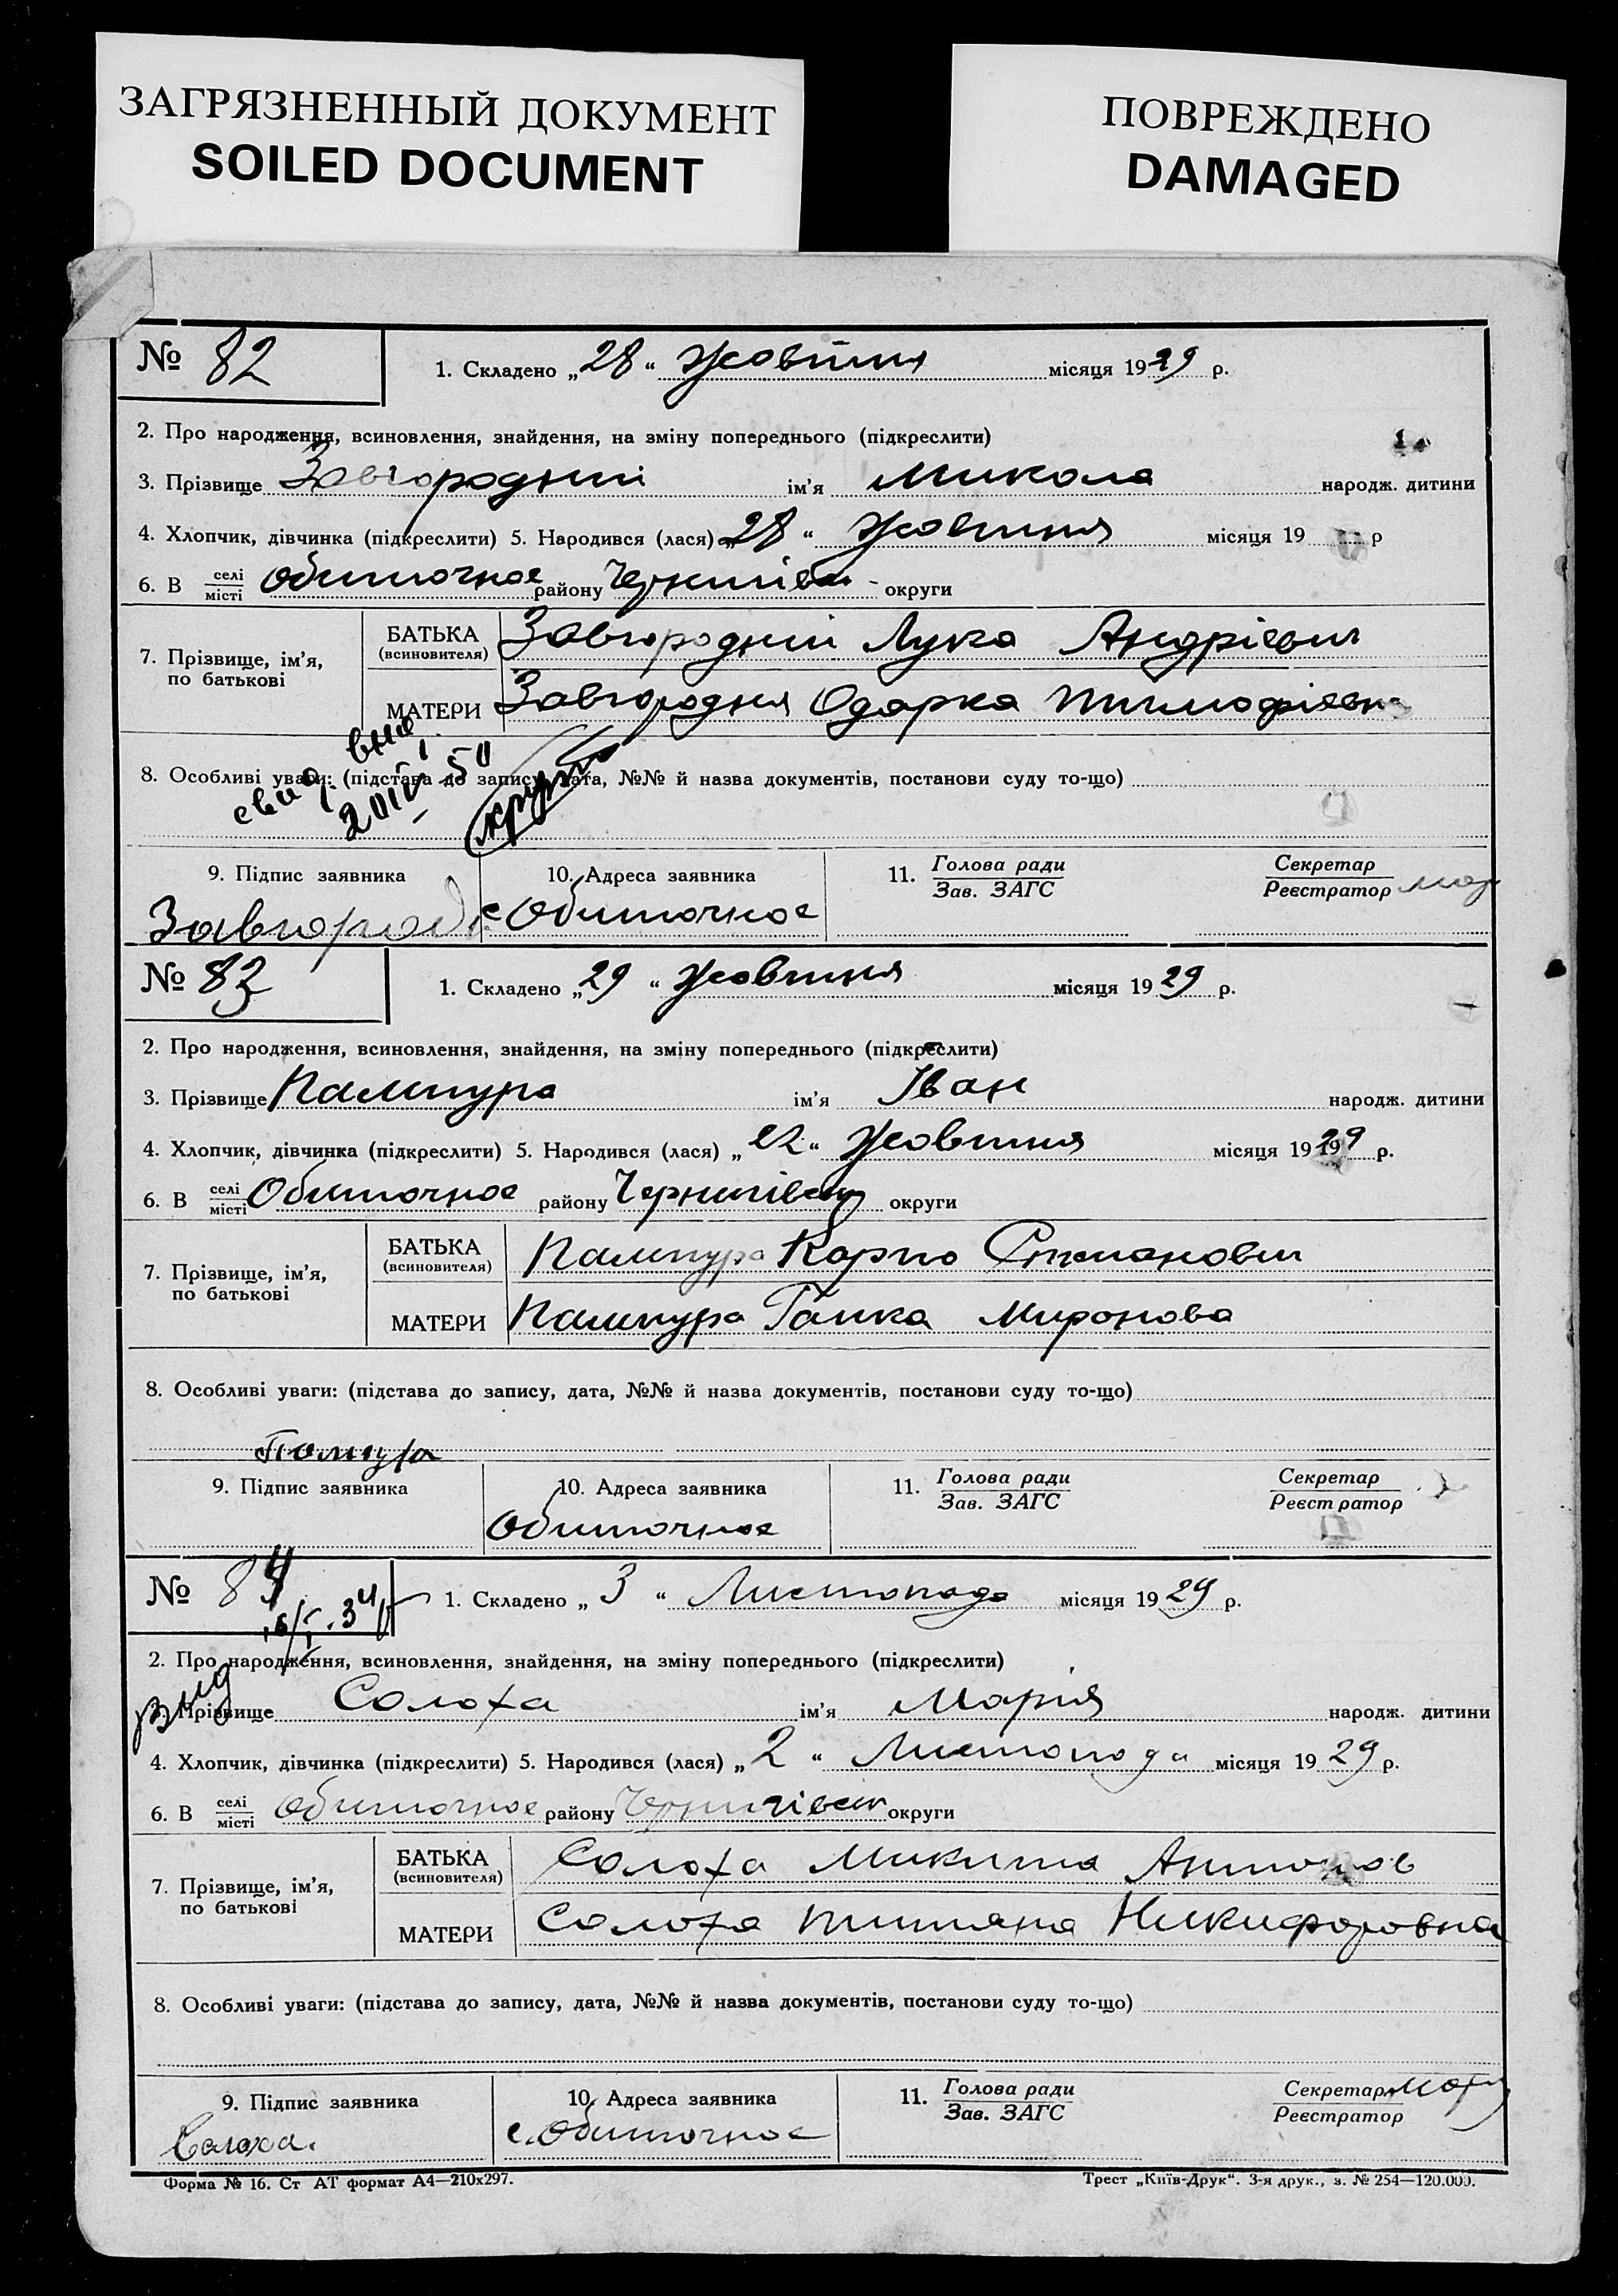 ЗАГРЯЗНЕННЫЙ ДОКУМЕНТ
SOILED DOCUMENT
ПОВРЕЖДЕНО
DAMAGED
№ 82
1. Складено „28“ Жовтня місяця 1929 р.
2. Про народження, всиновлення, знайдення, на зміну попереднього (підкреслити)
3. Прізвище Завгородний ім’я Микола народж. дитини
4. Хлопчик, дівчинка (підкреслити) 5. Народився (лася) „28“ Жовтня місяця 19 р
6. В селі місті Обиточное району Чернигівськ округи
7. Прізвище, ім’я, по батькові
БАТЬКА (всиновителя) Завгородний Лука Андрієвич
МАТЕРИ Завгородня Одарка Тимофієвн
8. Особливі уваги: (підстава до запису, дата, №№ й назва документів, постанови суду то-що)
9. Підпис заявника
10. Адреса заявника
11. Голова ради Зав. ЗАГС
Секретар Реєстратор
Завгород с Обиточное
№ 83
1. Складено „29“ Жовтня місяця 1929 р.
2. Про народження, всиновлення, знайдення, на зміну попереднього (підкреслити)
3. Прізвище Палтура ім’я Іван народж. дитини
4. Хлопчик, дівчинка (підкреслити) 5. Народився (лася) „22“ Жовтня місяця 1929 р.
6. В селі місті Обиточное району Чернигівськ округи
7. Прізвище, ім’я, по батькові
БАТЬКА (всиновителя) Палтура Карпо Степанович
МАТЕРИ Палтура Ганка Миронова
8. Особливі уваги: (підстава до запису, дата, №№ й назва документів, постанови суду то-що)
9. Підпис заявника
10. Адреса заявника
11. Голова ради Зав. ЗАГС
Секретар Реєстратор
Обиточное
№ 84
1. Складено „3“ Листопада місяця 1929 р.
2. Про народження, всиновлення, знайдення, на зміну попереднього (підкреслити)
3. Прізвище Солоха ім’я Марія народж. дитини
4. Хлопчик, дівчинка (підкреслити) 5. Народився (лася) „2“ Листопада місяця 1929 р.
6. В селі місті Обиточное району Чернигівськ округи
7. Прізвище, ім’я, по батькові
БАТЬКА (всиновителя) Солоха Микита Антонов
МАТЕРИ Солоха Титяна Никифоровна
8. Особливі уваги: (підстава до запису, дата, №№ й назва документів, постанови суду то-що)
9. Підпис заявника
10. Адреса заявника
11. Голова ради Зав. ЗАГС
Секретар Реєстратор
Солоха. с. Обиточное
Форма № 16. Ст АТ формат А4—210х297.
Трест „Київ-Друк“. 3-я друк., з. № 254—120.000.